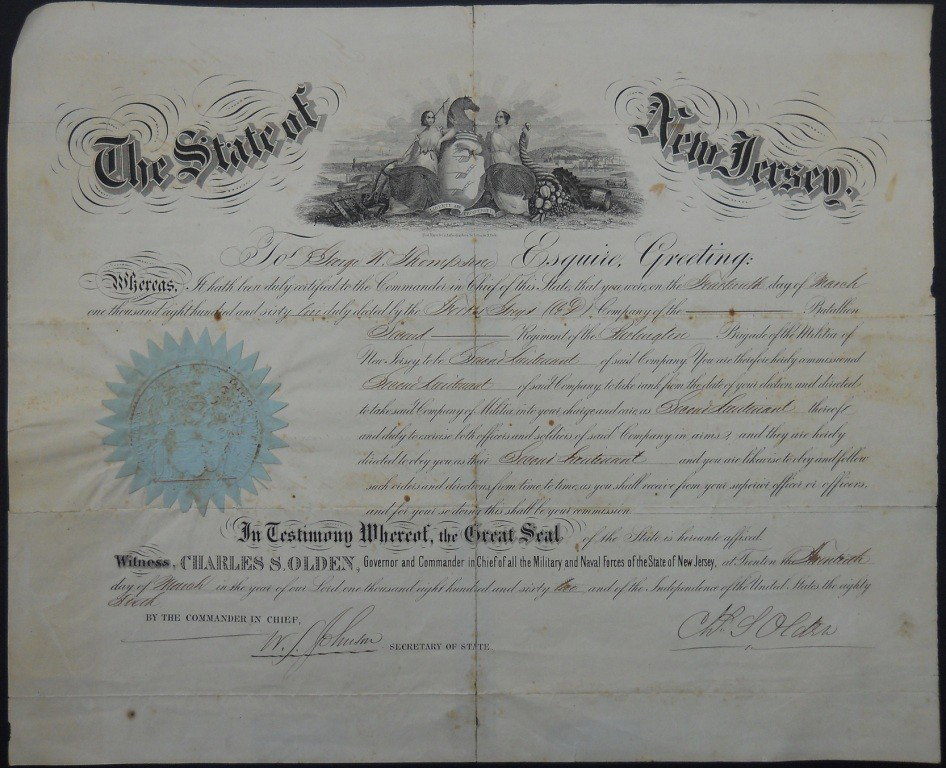 The State of New Jersey.
To George W Thompson Esquire, Greeting:
Whereas, It hath been duly certified to the Commander in Chief of this State, that you were, on the Fourteenth day of March
one thousand eight hundred and sixty two duly elected by the Company of the Battalion
Second Regiment of the Brigade of the Militia of
New Jersey to be Second Lieutenant of said Company. You are therefore hereby commissioned
Second Lieutenant of said Company, to take rank from the date of your election, and directed
to take said Company of Militia, into your charge and care, as Second Lieutenant thereof
and duly to exercise both officers and soldiers of said Company in arms; and they are hereby
directed to obey you as their Second Lieutenant and you are likewise to obey and follow
such orders and directions, from time to time, as you shall receive from your superior officer or officers,
and for your so doing this shall be your commission.
In Testimony Whereof, the Great Seal of the State is hereunto affixed.
Witness, CHARLES S. OLDEN, Governor and Commander in Chief of all the Military and Naval Forces of the State of New Jersey, at Trenton the
day of March in the year of our Lord one thousand eight hundred and sixty two and of the Independence of the United States the eighty
Sixth
BY THE COMMANDER IN CHIEF,
W. S. Johnson SECRETARY OF STATE.
Chs. S Olden